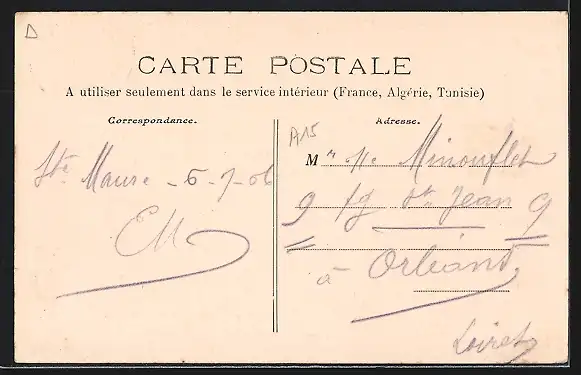 D
CARTE POSTALE
A utiliser seulement dans le service intérieur (France, Algérie, Tunisie)
Correspondance.
Adresse.
A15
Ste Maure - 6-7-06
EM
M lle Minouflet
9 fg St Jean 9
à Orléans
Loiret